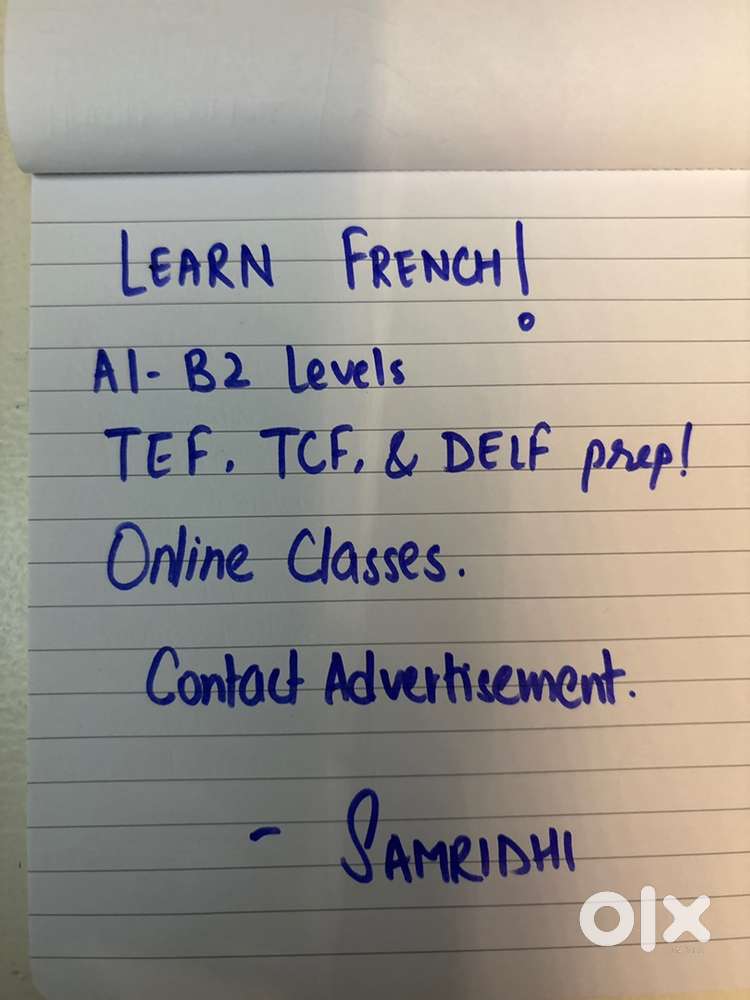 LEARN FRENCH!
A1-B2 Levels
TEF, TCF, & DELF prep!
Online Classes.
Contact Advertisement.
- SAMRIDHI
olx